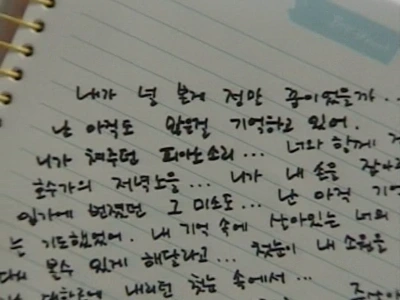 내가 널 본게 정말 꿈이었을까..
난 아직도 많은걸 기억하고 있어.
니가 쳐주던 피아노소리... 너와 함께
호수가의 저녁노을... 니가 내 손을 잡아
입가에 번졌던 그 미소도... 난 아직 기억
는 기도했었어. 내 기억 속에 살아있는 너의
다시 볼수 있게 해달라고... 첫눈이 내 소원을
내리던 첫눈 속에서...